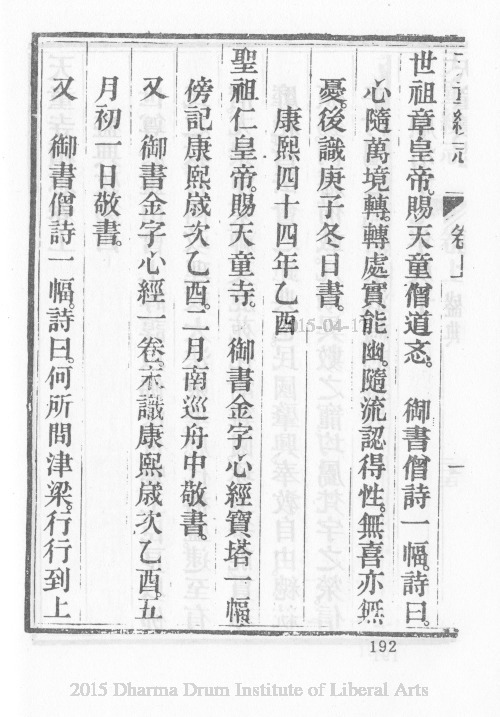 世祖章皇帝。賜天童僧道忞。　御書僧詩一幅。詩曰。
心隨萬境轉。轉處實能幽。隨流認得性。無喜亦無
憂。後識庚子冬日書。
康熙四十四年乙酉
聖祖仁皇帝。賜天童寺。　御書金字心經寶塔一幅。
傍記康熙歲次乙酉二月南巡舟中敬書。
又　御書金字心經一卷。末識康熙歲次乙酉。五
月初一日敬書。
又　御書僧詩一幅。詩曰。何所問津梁。行行到上
192
2015-04-17
2015 Dharma Drum Institute of Liberal Arts